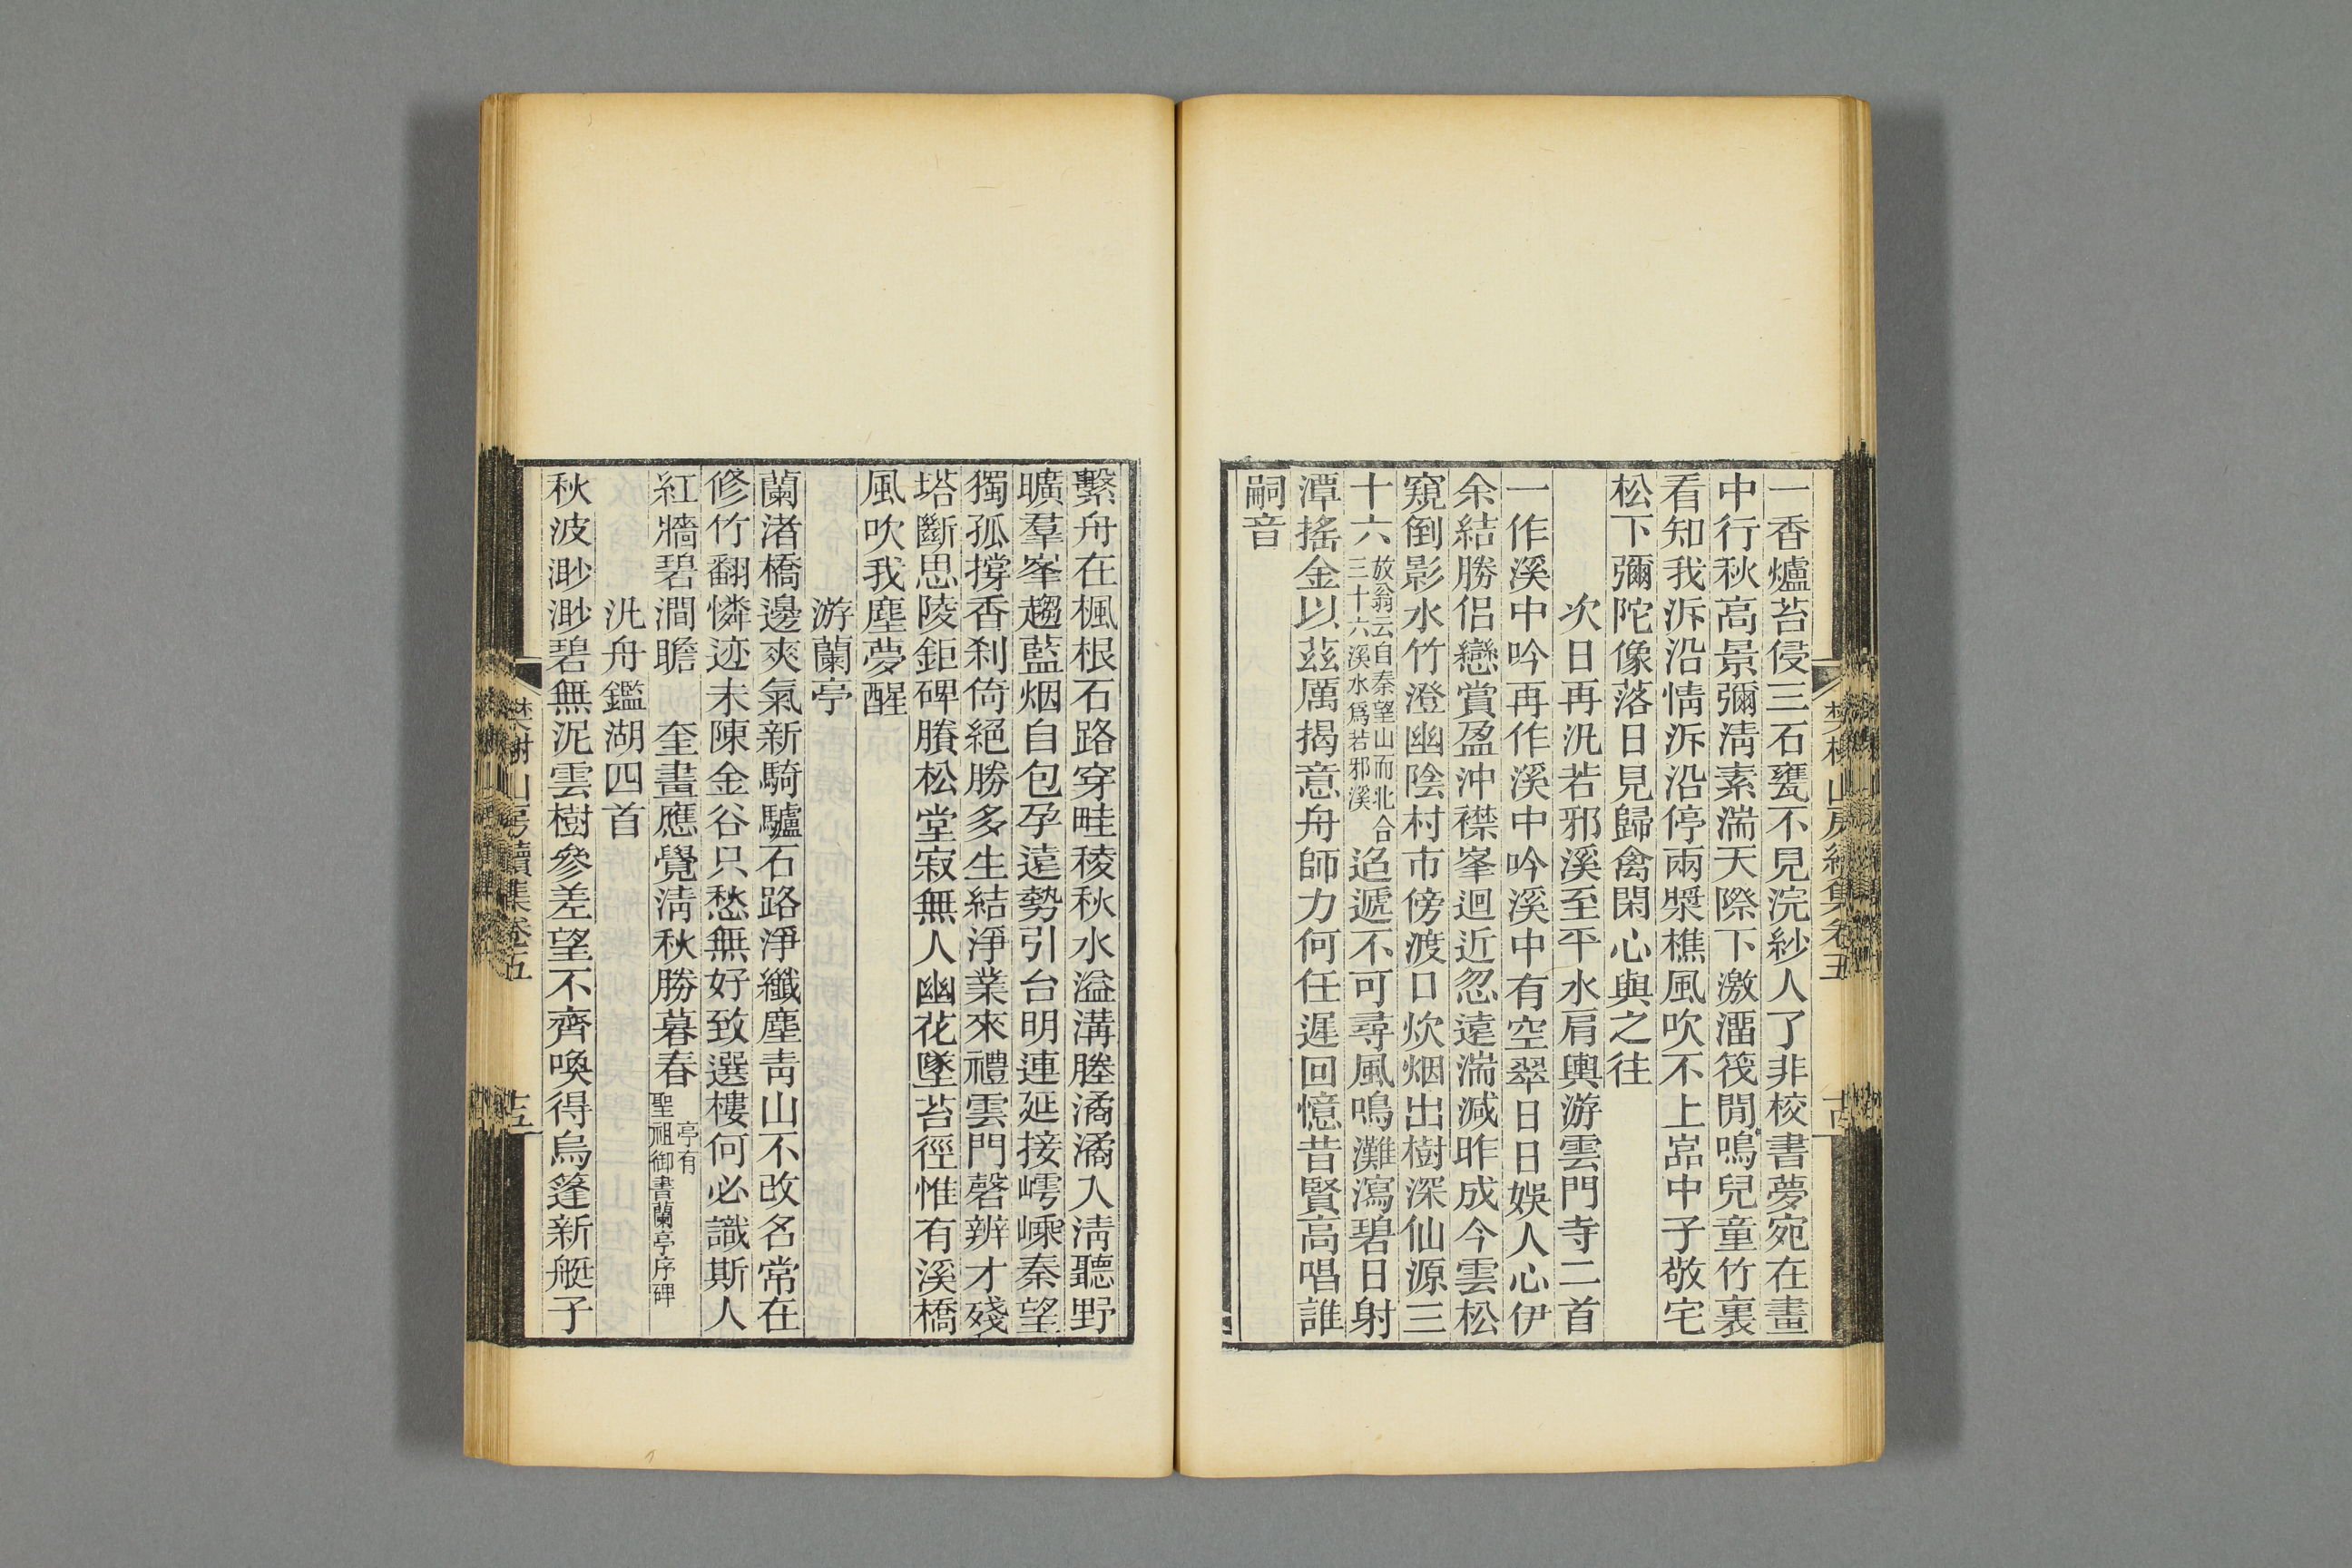 一香爐苔侵三石甕不見浣紗人了非校書夢宛在畫
中行秋高景彌淸素湍天際下激濇筏閒鳴兒童竹裏
看知我泝沿情泝沿停兩槳樵風吹不上嵓中子敬宅
松下彌陀像落日見歸禽閑心與之往
次日再汎若邪溪至平水肩輿游雲門寺二首
一作溪中吟再作溪中吟溪中有空翠日日娛人心伊
余結勝侶戀賞盈沖襟峯迴近忽遠湍減昨成今雲松
窺倒影水竹澄幽陰村市傍渡口炊烟出樹深仙源三
十六放翁云自秦望山而北合三十六溪水爲若邪溪迢遞不可尋風鳴灘瀉碧日射
潭搖金以茲厲揭意舟師力何任遲回憶昔賢高唱誰
嗣音
繫舟在楓根石路穿畦稜秋水溢溝塍潏潏入淸聽野
曠羣峯趨藍烟自包孕遠勢引台明連延接嶀嵊秦望
獨孤撐香刹倚絕勝多生結淨業來禮雲門磬辨才殘
塔斷思陵鉅碑賸松堂寂無人幽花墜苔徑惟有溪橋
風吹我塵夢醒
游蘭亭
蘭渚橋邊爽氣新騎驢石路淨纖塵靑山不改名常在
修竹翻憐迹未陳金谷只愁無好致選樓何必識斯人
紅牆碧澗瞻　奎畫應覺淸秋勝暮春亭有聖祖御書蘭亭序碑
汎舟鑑湖四首
秋波渺渺碧無泥雲樹參差望不齊喚得烏篷新艇子
樊榭山房續集卷五